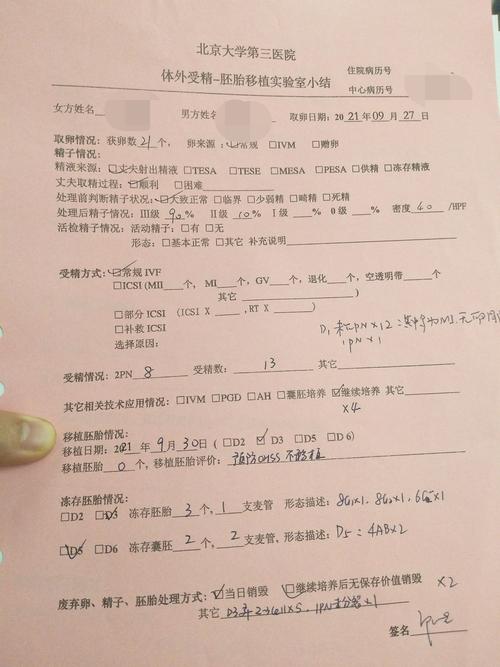 北京大学第三医院
体外受精-胚胎移植实验室小结
住院病历号
中心病历号
女方姓名 男方姓名 取卵日期: 2021年09月27日
取卵情况: 获卵数21个, 卵来源: ☑常规 □IVM □赠卵
精子情况:
精液来源: ☑丈夫射出精液 □TESA □TESE □MESA □PESA □供精 □冻存精液
丈夫取精过程: ☑顺利 □困难
处理前判断精子状况: ☑大致正常 □临界 □少弱精 □畸精 □死精
处理后精子情况: Ⅲ级 90% Ⅱ级 10% Ⅰ级 % 0级 % 密度 40 /HPF
活检精子情况: 活动精子: □有 □无
形态: □基本正常 □其它 补充说明
受精方式: ☑常规 IVF
□ICSI (MII 个, MI 个, GV 个, 退化 个, 空透明带 个
其它 )
□部分 ICSI (ICSI X , RT X )
□补救 ICSI
选择原因:
D1 未PN×12:
1PN×1
受精情况: 2PN 8 受精数: 13 其它
其它相关技术应用情况: □IVM □PGD □AH □囊胚培养 ☑继续培养 其它
×4
移植胚胎情况:
移植日期: 2021年9月30日 (□D2 ☑D3 □D5 □D6)
移植胚胎 0 个, 移植胚胎评价: 预防OHSS 不移植
冻存胚胎情况:
□D2 ☑D3 冻存胚胎 3 个, 1 支麦管 形态描述: 8G1×1, 8G2×1, 6G2×1
☑D5 □D6 冻存囊胚 2 个, 2 支麦管, 形态描述: D5: 4AB×2
废弃卵、精子、胚胎处理方式: ☑当日销毁 ☑继续培养后无保存价值销毁 ×2
其它 D3弃 2→cell×5, 1PN未分裂×1
签名